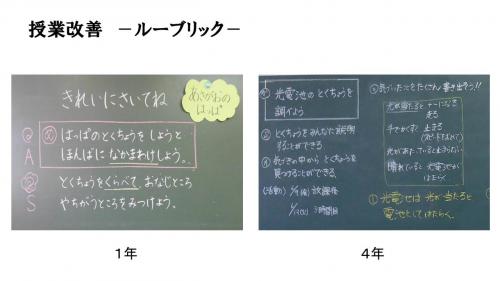 授業改善 －ルーブリック－
きれいにさいてね
あさがおの
はっぱ
A
はっぱのとくちょうを しょうと
ほんばに なかまわけしょう。
S
とくちょうをくらべて、おなじところ
やちがうところをみつけよう。
1年
光電池のとくちょうを
調べよう
とくちょうをみんなに説明
することができる
気づきの中から とくちょうを
見つけることができる
放課後
気づいたことをたくさん書き出そう!!
光が当たると
走る
手でかくすと 止まる
光があたっていると止まらない
晴れていると 光電池が
はたらく
①光電池は 光が当たると
電池としてはたらく。
4年